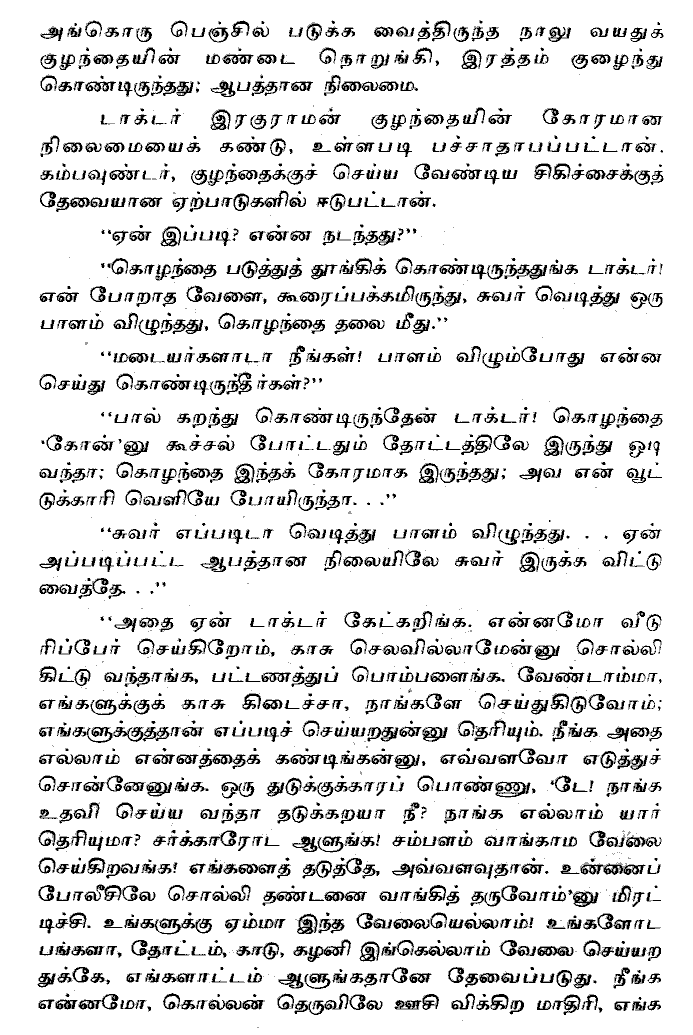 அங்கொரு பெஞ்சில் படுக்க வைத்திருந்த நாலு வயதுக்
குழந்தையின் மண்டை நொறுங்கி, இரத்தம் குழைந்து
கொண்டிருந்தது; ஆபத்தான நிலைமை.
டாக்டர் இரகுராமன் குழந்தையின் கோரமான
நிலைமையைக் கண்டு, உள்ளபடி பச்சாதாபப்பட்டான்.
கம்பவுண்டர், குழந்தைக்குச் செய்ய வேண்டிய சிகிச்சைக்குத்
தேவையான ஏற்பாடுகளில் ஈடுபட்டான்.
‘‘ஏன் இப்படி? என்ன நடந்தது?’’
‘‘கொழந்தை படுத்துத் தூங்கிக் கொண்டிருந்ததுங்க டாக்டர்!
என் போறாத வேளை, கூரைப்பக்கமிருந்து, சுவர் வெடித்து ஒரு
பாளம் விழுந்தது, கொழந்தை தலை மீது.’’
‘‘மடையர்களாடா நீங்கள்! பாளம் விழும்போது என்ன
செய்து கொண்டிருந்தீர்கள்?’’
‘‘பால் கறந்து கொண்டிருந்தேன் டாக்டர்! கொழந்தை
‘கோன்’னு கூச்சல் போட்டதும் தோட்டத்திலே இருந்து ஓடி
வந்தா; கொழந்தை இந்தக் கோரமாக இருந்தது; அவ என் வூட்
டுக்காரி வெளியே போயிருந்தா. . .’’
‘‘சுவர் எப்படிடா வெடித்து பாளம் விழுந்தது. . . ஏன்
அப்படிப்பட்ட ஆபத்தான நிலையிலே சுவர் இருக்க விட்டு
வைத்தே. . .’’
‘‘அதை ஏன் டாக்டர் கேட்கறிங்க. என்னமோ வீடு
ரிப்பேர் செய்கிறோம், காசு செலவில்லாமேன்னு சொல்லி
கிட்டு வந்தாங்க, பட்டணத்துப் பொம்பளைங்க. வேண்டாம்மா,
எங்களுக்குக் காசு கிடைச்சா, நாங்களே செய்துகிடுவோம்;
எங்களுக்குத்தான் எப்படிச் செய்யறதுன்னு தெரியும். நீங்க அதை
எல்லாம் என்னத்தைக் கண்டிங்கன்னு, எவ்வளவோ எடுத்துச்
சொன்னேனுங்க. ஒரு துடுக்குக்காரப் பொண்ணு, ‘டே! நாங்க
உதவி செய்ய வந்தா தடுக்கறயா நீ? நாங்க எல்லாம் யார்
தெரியுமா? சர்க்காரோட ஆளுங்க! சம்பளம் வாங்காம வேலை
செய்கிறவங்க! எங்களைத் தடுத்தே, அவ்வளவுதான். உன்னைப்
போலீசிலே சொல்லி தண்டனை வாங்கித் தருவோம்’னு மிரட்
டிச்சி. உங்களுக்கு ஏம்மா இந்த வேலையெல்லாம்! உங்களோட
பங்களா, தோட்டம், காடு, கழனி இங்கெல்லாம் வேலை செய்யற
துக்கே, எங்களாட்டம் ஆளுங்கதானே தேவைப்படுது. நீங்க
என்னமோ, கொல்லன் தெருவிலே ஊசி விக்கிற மாதிரி, எங்க